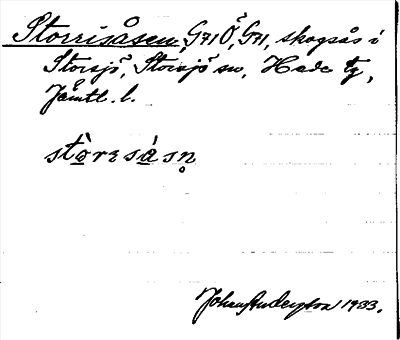 Storrisåsen, G71Ö, G71, skogsås i
Storsjö, Storsjö sn, Hede tg,
Jämtl. l.
stòrɛsá sn̥
Johan Anderzon 1933.